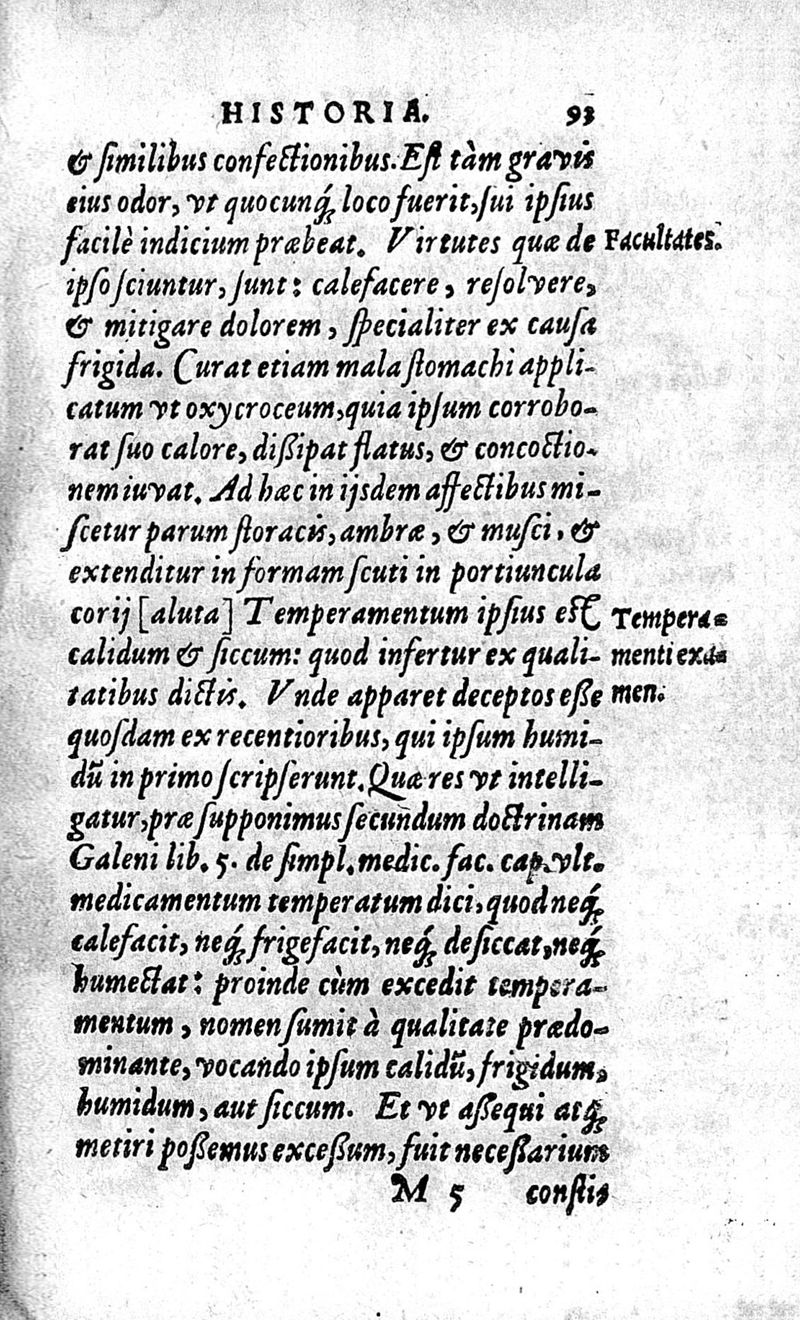 HISTORIA. 93
& ſimilibus confectionibus. Eſt tàm gravis
eius odor, vt quocunq́; loco fuerit, ſui ipſius
facilè indicium præbeat. Virtutes quæ de
Facultates.
ipſo ſciuntur, ſunt: calefacere, reſolvere,
& mitigare dolorem, ſpecialiter ex cauſa
frigida. Curat etiam mala ſtomachi appli-
catum vt oxycroceum, quia ipſum corrobo-
rat ſuo calore, dißipat flatus, & concoctio-
nem iuvat. Ad hæc in ijsdem affectibus mi-
ſcetur parum ſtoracis, ambræ, & muſci, &
extenditur in formam ſcuti in portiuncula
corij [aluta] Temperamentum ipſius eſt
Tempera-
calidum & ſiccum: quod infertur ex quali-
menti exa-
tatibus dictis. Vnde apparet deceptos eße
men.
quoſdam ex recentioribus, qui ipſum humi-
dũ in primo ſcripſerunt. Quæ res vt intelli-
gatur, præſupponimus ſecundum doctrinam
Galeni lib. 5. de ſimpl. medic. fac. cap. vlt.
medicamentum temperatum dici, quod neq́;
calefacit, neq́; frigefacit, neq́; deſiccat, neq́;
humectat: proinde cùm excedit tempera-
mentum, nomen ſumit à qualitate prædo-
minante, vocando ipſum calidũ, frigidum,
humidum, aut ſiccum. Et vt aßequi atq́;
metiri poßemus exceßum, fuit neceſſarium
M 5 conſti-